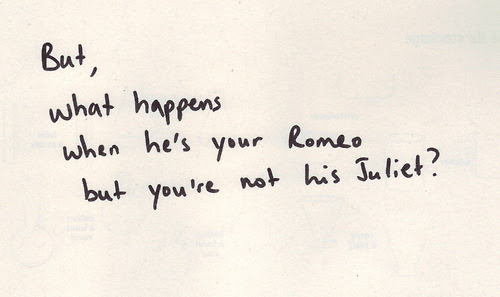 But,
what happens
when he's your Romeo
but you're not his Juliet?